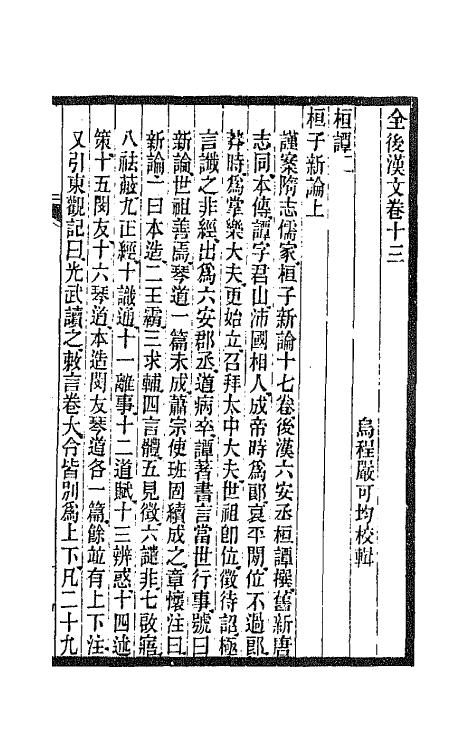 全後漢文卷十三
烏程嚴可均校輯
桓譚二
桓子新論上
謹案隋志儒家桓子新論十七卷後漢六安丞桓譚撰舊新唐
志同本傳譚字君山沛國相人成帝時爲郎哀平閒位不過郎
莽時爲掌樂大夫更始立召拜太中大夫世祖卽位徵待詔極
言讖之非經出爲六安郡丞道病卒譚著書言當世行事號曰
新論世祖善焉琴道一篇未成肅宗使班固續成之章懷注曰
新論一曰本造二王霸三求輔四言體五見徵六譴非七啟寤
八祛蔽九正經十識通十一離事十二道賦十三辨惑十四述
策十五閔友十六琴道本造閔友琴道各一篇餘竝有上下注
又引東觀記曰光武讀之敕言卷大令皆別爲上下凡二十九